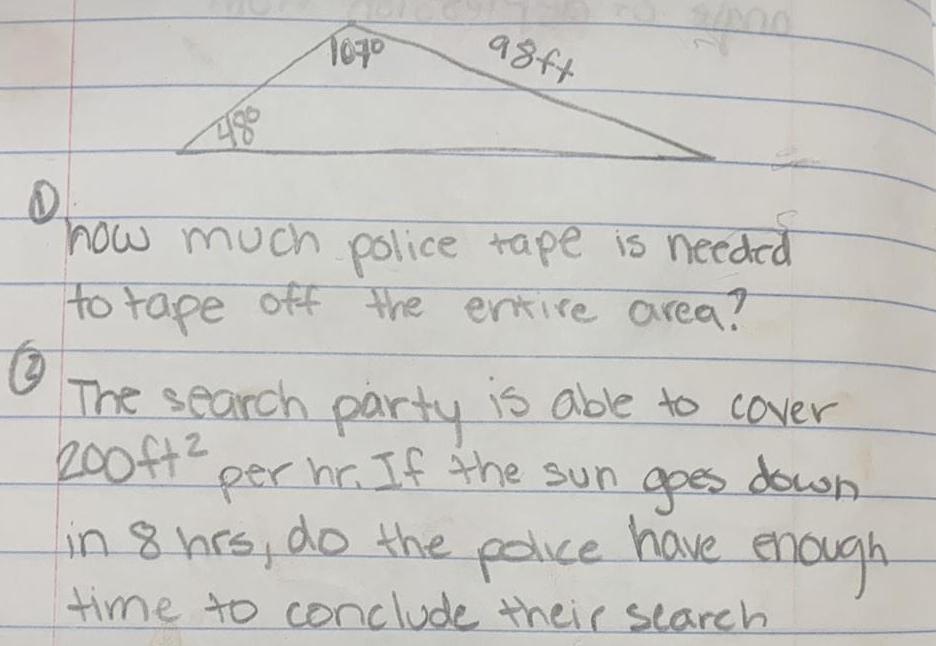 107° 98ft
48°
① how much police tape is needed
to tape off the entire area?
② The search party is able to cover
200ft² per hr. If the sun goes down
in 8 hrs, do the police have enough
time to conclude their search